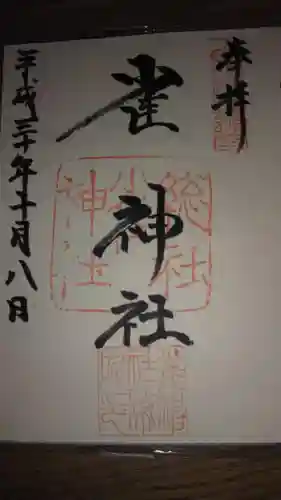 奉拝
雀神社
平成三十年十月八日
総社
神社